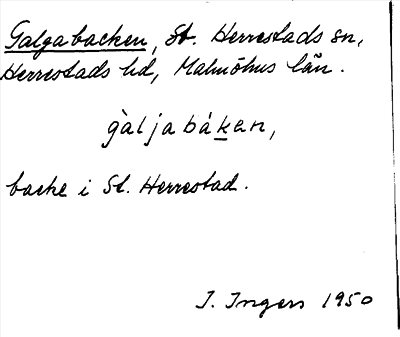 Galgabacken, St. Herrestads sn,
Herrestads hd, Malmöhus län.
gàljabáken,
backe i St. Herrestad.
I. Ingers 1950